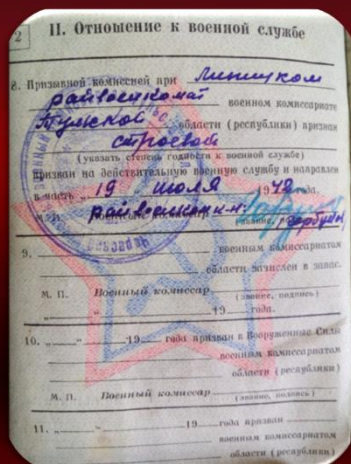 2
II. Отношение к военной службе
8. Призывной комиссией при Липицком
райвоенкомат военном комиссариате
Тульской области (республики) признан
строевой
(указать степень годности к военной службе)
призван на действительную военную службу и направлен
в часть „ 19 июля 1948 года.
М. П. райвоенком
9. военным комиссариатом
области зачислен в запас.
М. П. Военный комиссар
(звание, подпись)
„ “ 19 года.
10. „ “ 19 года призван в Вооруженные Силы
военным комиссариатом
области (республики)
М. П. Военный комиссар
(звание, подпись)
11. „ “ 19 года призван
военным комиссариатом
области (республики)